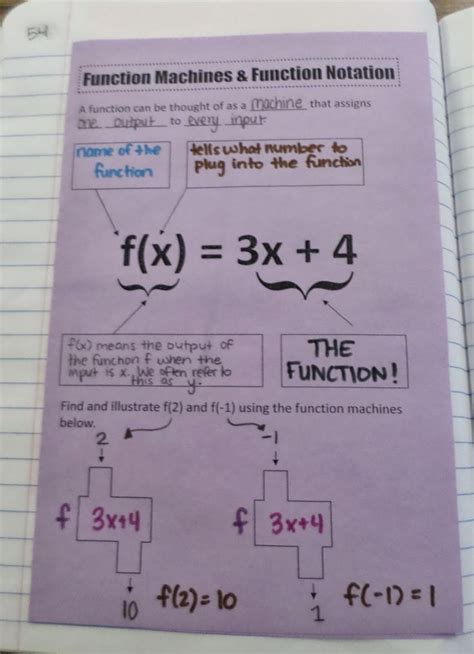 54
Function Machines & Function Notation
A function can be thought of as a machine that assigns
one output to every input.
name of the
function
tells what number to
plug into the function
f(x) = 3x + 4
f(x) means the output of
the function f when the
input is x. We often refer to
this as y.
THE
FUNCTION!
Find and illustrate f(2) and f(-1) using the function machines
below.
2
-1
f 3x+4
f 3x+4
10 f(2)=10
1 f(-1)=1